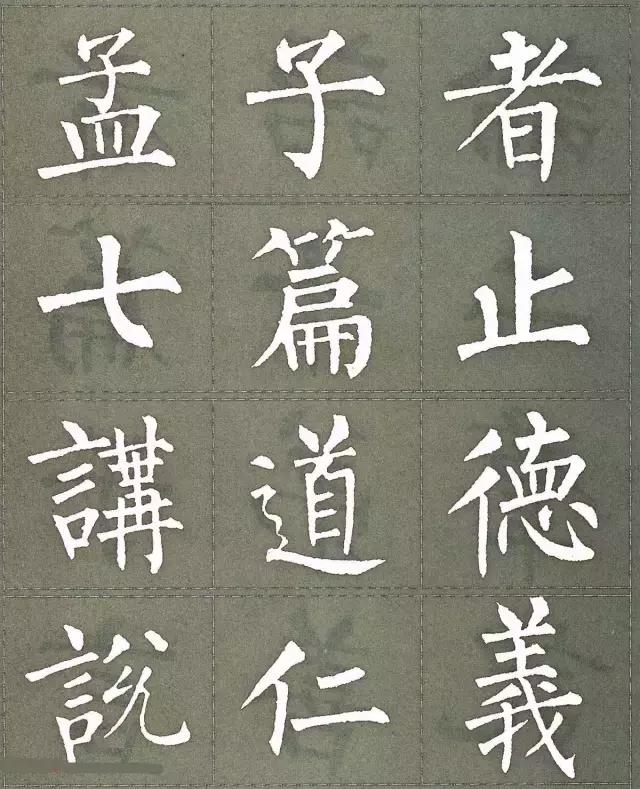 孟子者
七篇止
講道德
說仁義